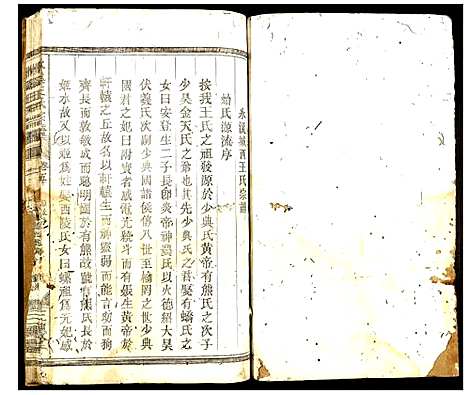 永康城西王氏宗譜
蟜氏源流序
按我王氏之頑發源於少典氏黃帝有熊氏之次子
少昊金天氏之裔也其先少典氏之君娶有蟜氏之
女曰安登生二子長卽炎帝神農氏以火德紹大昊
伏羲氏次嗣少典國諸侯傳八世至榆罔之少典
國君之妃曰附寶者感電光繞斗而有娠生黃帝於
軒轅之丘故名曰軒轅生而神靈弱而能言幼而狥
齊長而敦敏成而聰明國於有熊號有熊氏長於
姬水故又以姬爲姓娶西陵氏女曰嫘祖爲元妃感